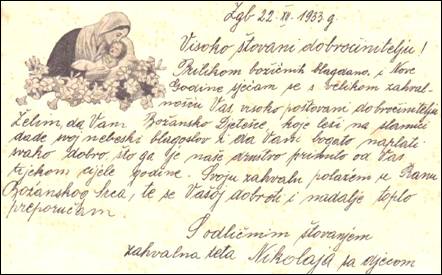 Zgb 22. XII. 1933 g.
Visoko štovani dobročinitelju!
Prilikom božićnih blagdana, i Nove
Godine sjećam se s velikom zahval-
nošću Vas visoko poštovani dobročinitelju
Želim, da Vam Božansko Djetešce koje leži na slamici
dade svoj nebeski blagoslov i da Vam bogato naplati
svako dobro, što ga je naše društvo primilo od Vas
tijekom cijele godine. Svoju zahvalu polažem u Ranu
Božanskog Srca, te se Vašoj dobroti i nadalje toplo
preporučam.
S odličnim štovanjem
zahvalna teta Nikolaja sa djecom